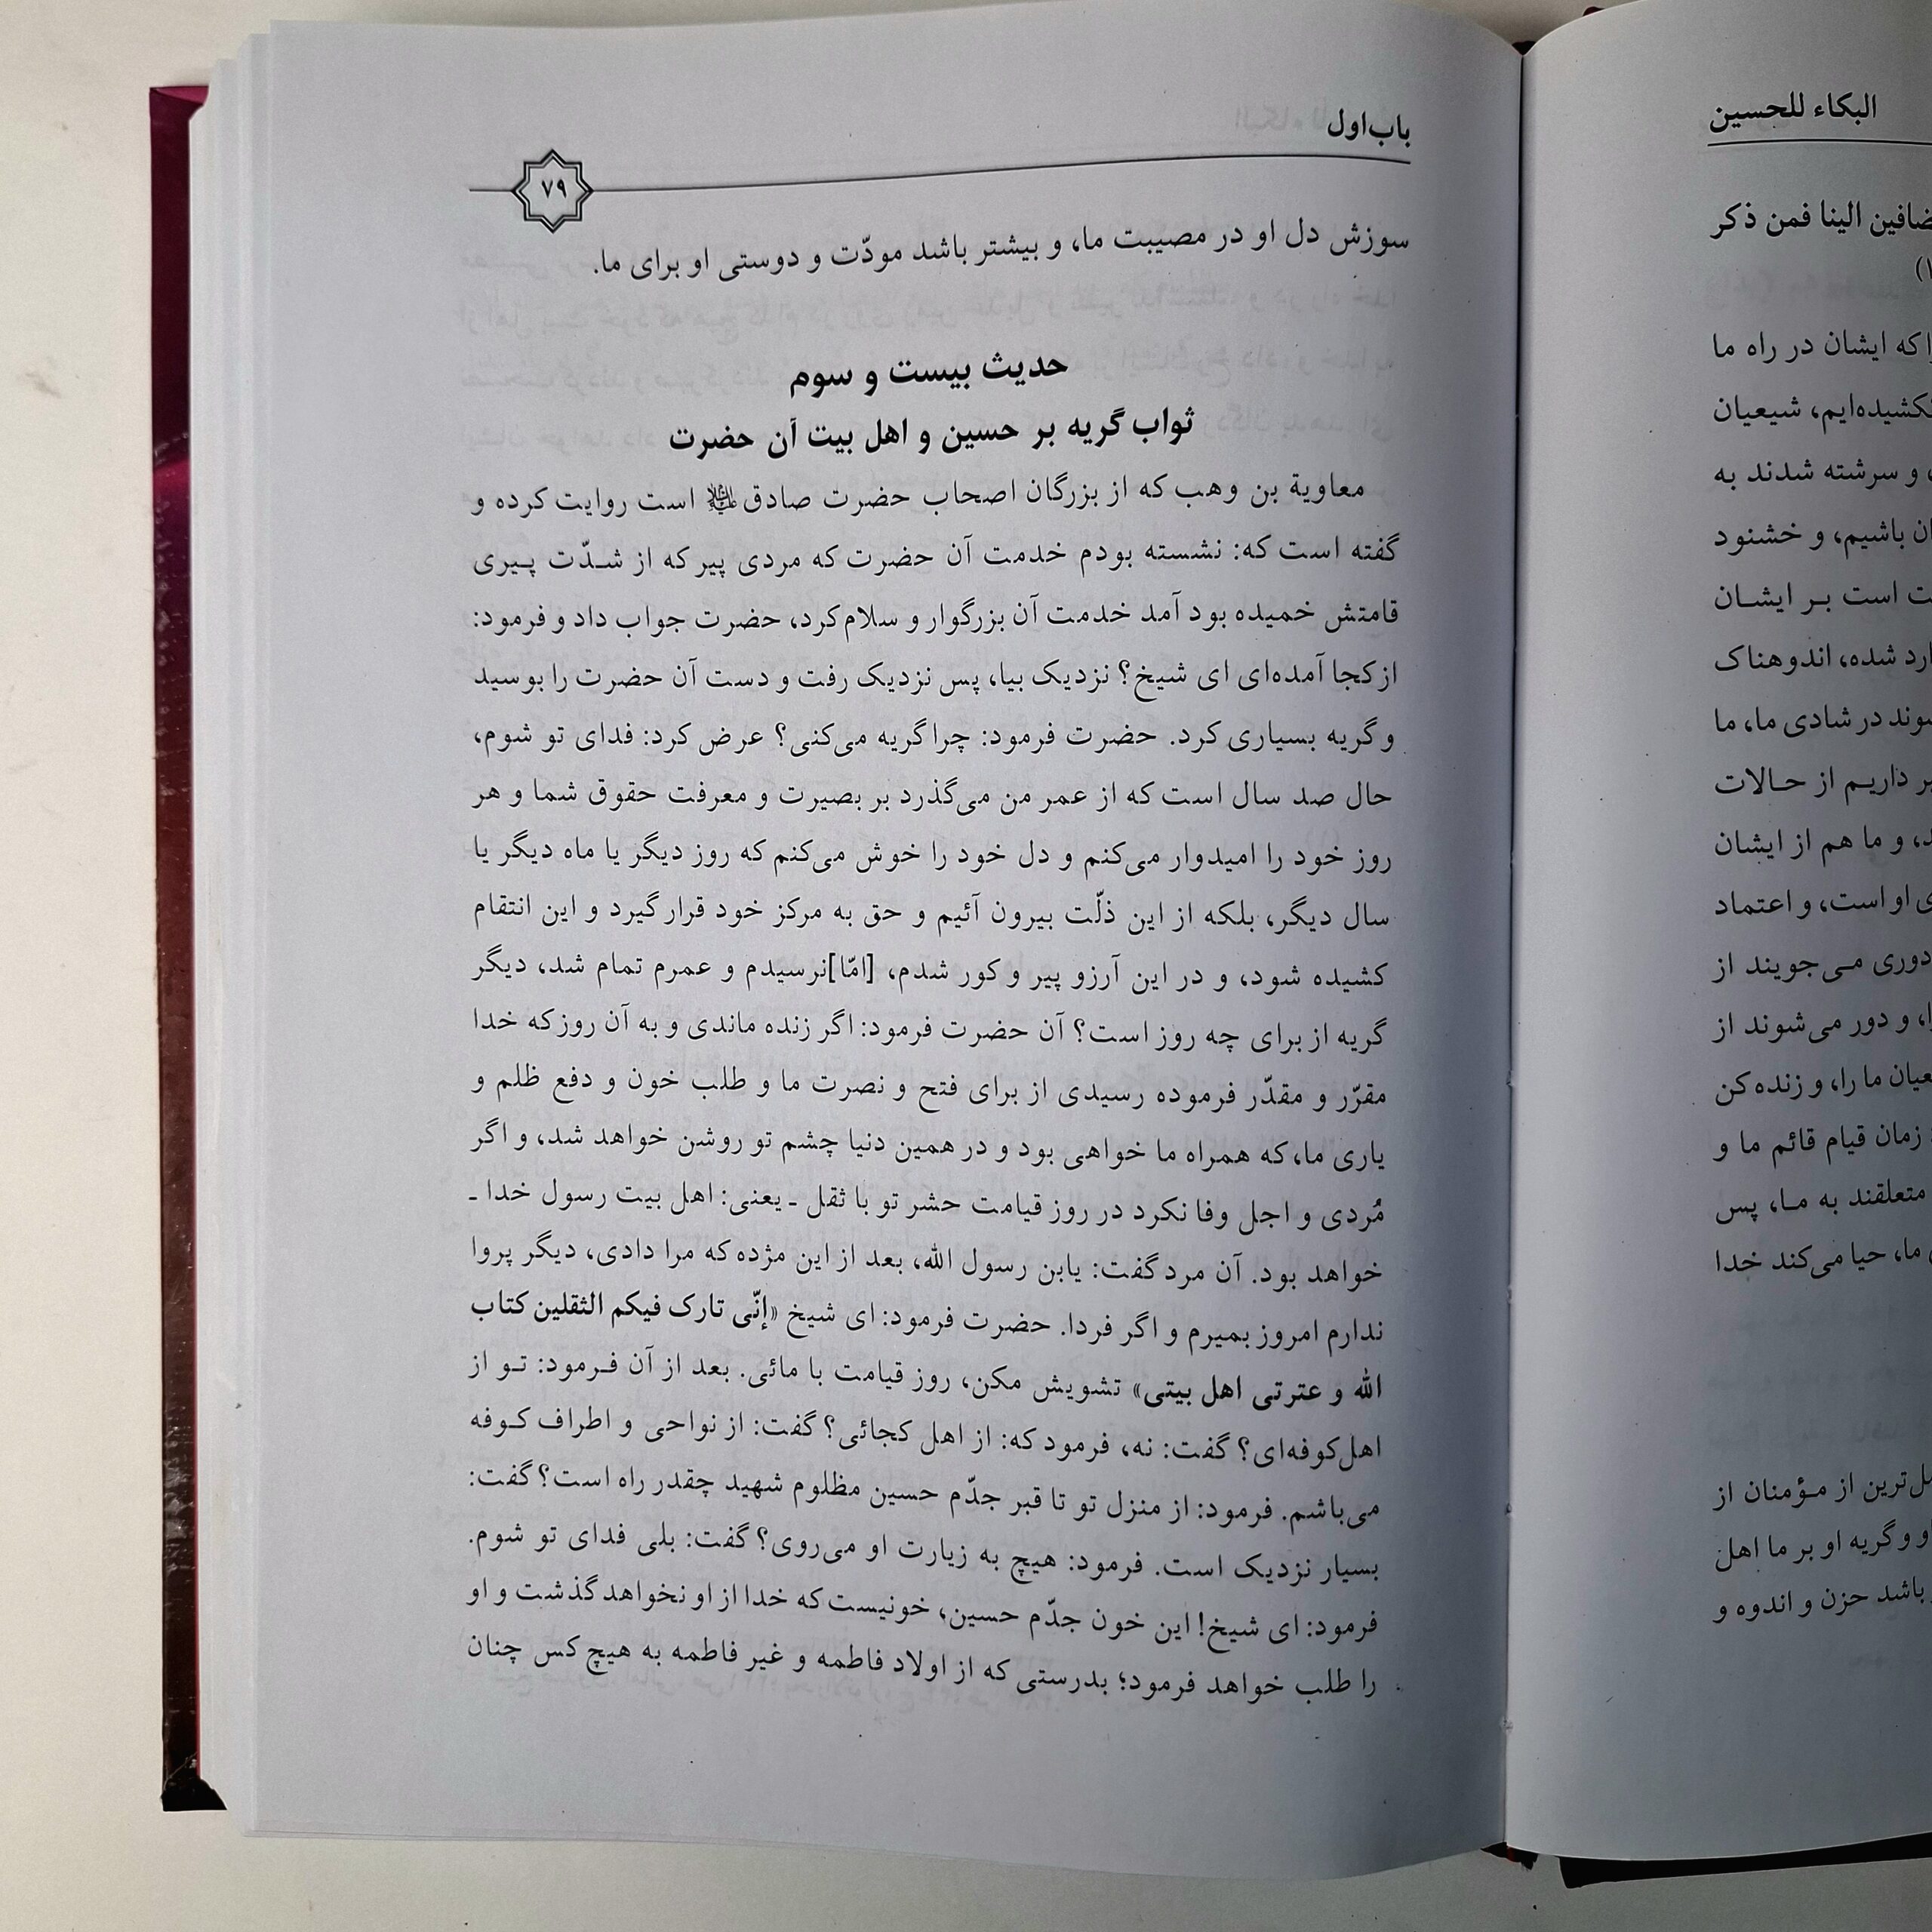 باب اول
۷۹
سوزش دل او در مصیبت ما، و بیشتر باشد مودّت و دوستی او برای ما.
حدیث بیست و سوم
ثواب گریه بر حسین و اهل بیت آن حضرت
معاویة بن وهب که از بزرگان اصحاب حضرت صادق علیه السلام است روایت کرده و
گفته است که: نشسته بودم خدمت آن حضرت که مردی پیر که از شدّت پیری
قامتش خمیده بود آمد خدمت آن بزرگوار و سلام کرد، حضرت جواب داد و فرمود:
از کجا آمده‌ای ای شیخ؟ نزدیک بیا، پس نزدیک رفت و دست آن حضرت را بوسید
و گریه بسیاری کرد. حضرت فرمود: چرا گریه می‌کنی؟ عرض کرد: فدای تو شوم،
حال صد سال است که از عمر من می‌گذرد بر بصیرت و معرفت حقوق شما و هر
روز خود را امیدوار می‌کنم و دل خود را خوش می‌کنم که روز دیگر یا ماه دیگر یا
سال دیگر، بلکه از این ذلّت بیرون آئیم و حق به مرکز خود قرار گیرد و این انتقام
کشیده شود، و در این آرزو پیر و کور شدم، [امّا]نرسیدم و عمرم تمام شد، دیگر
گریه از برای چه روز است؟ آن حضرت فرمود: اگر زنده ماندی و به آن روز که خدا
مقرّر و مقدّر فرموده رسیدی از برای فتح و نصرت ما و طلب خون و دفع ظلم و
یاری ما، که همراه ما خواهی بود و در همین دنیا چشم تو روشن خواهد شد، و اگر
مُردی و اجل وفا نکرد در روز قیامت حشر تو با ثقل ـ یعنی: اهل بیت رسول خدا ـ
خواهد بود. آن مرد گفت: یابن رسول الله، بعد از این مژده که مرا دادی، دیگر پروا
ندارم امروز بمیرم و اگر فردا. حضرت فرمود: ای شیخ «إنّی تارک فیکم الثقلین کتاب
الله و عترتی اهل بیتی» تشویش مکن، روز قیامت با مائی. بعد از آن فرمود: تو از
اهل کوفه‌ای؟ گفت: نه، فرمود که: از اهل کجائی؟ گفت: از نواحی و اطراف کوفه
می‌باشم. فرمود: از منزل تو تا قبر جدّم حسین مظلوم شهید چقدر راه است؟ گفت:
بسیار نزدیک است. فرمود: هیچ به زیارت او می‌روی؟ گفت: بلی فدای تو شوم.
فرمود: ای شیخ! این خون جدّم حسین، خونیست که خدا از او نخواهد گذشت و او
را طلب خواهد فرمود؛ بدرستی که از اولاد فاطمه و غیر فاطمه به هیچ کس چنان
البکاء للحسین
الینا فمن ذکر
که ایشان در راه ما
شیعیان
و سرشته شدند به
باشیم، و خشنود
است بر ایشان
شده، اندوهناک
در شادی ما، ما
داریم از حالات
و ما هم از ایشان
او است، و اعتماد
دوری می‌جویند از
و دور می‌شوند از
ما را، و زنده کن
زمان قیام قائم ما و
متعلقند به ما، پس
ما، حیا می‌کند خدا
از مؤمنان از
و گریه او بر ما اهل
باشد حزن و اندوه و